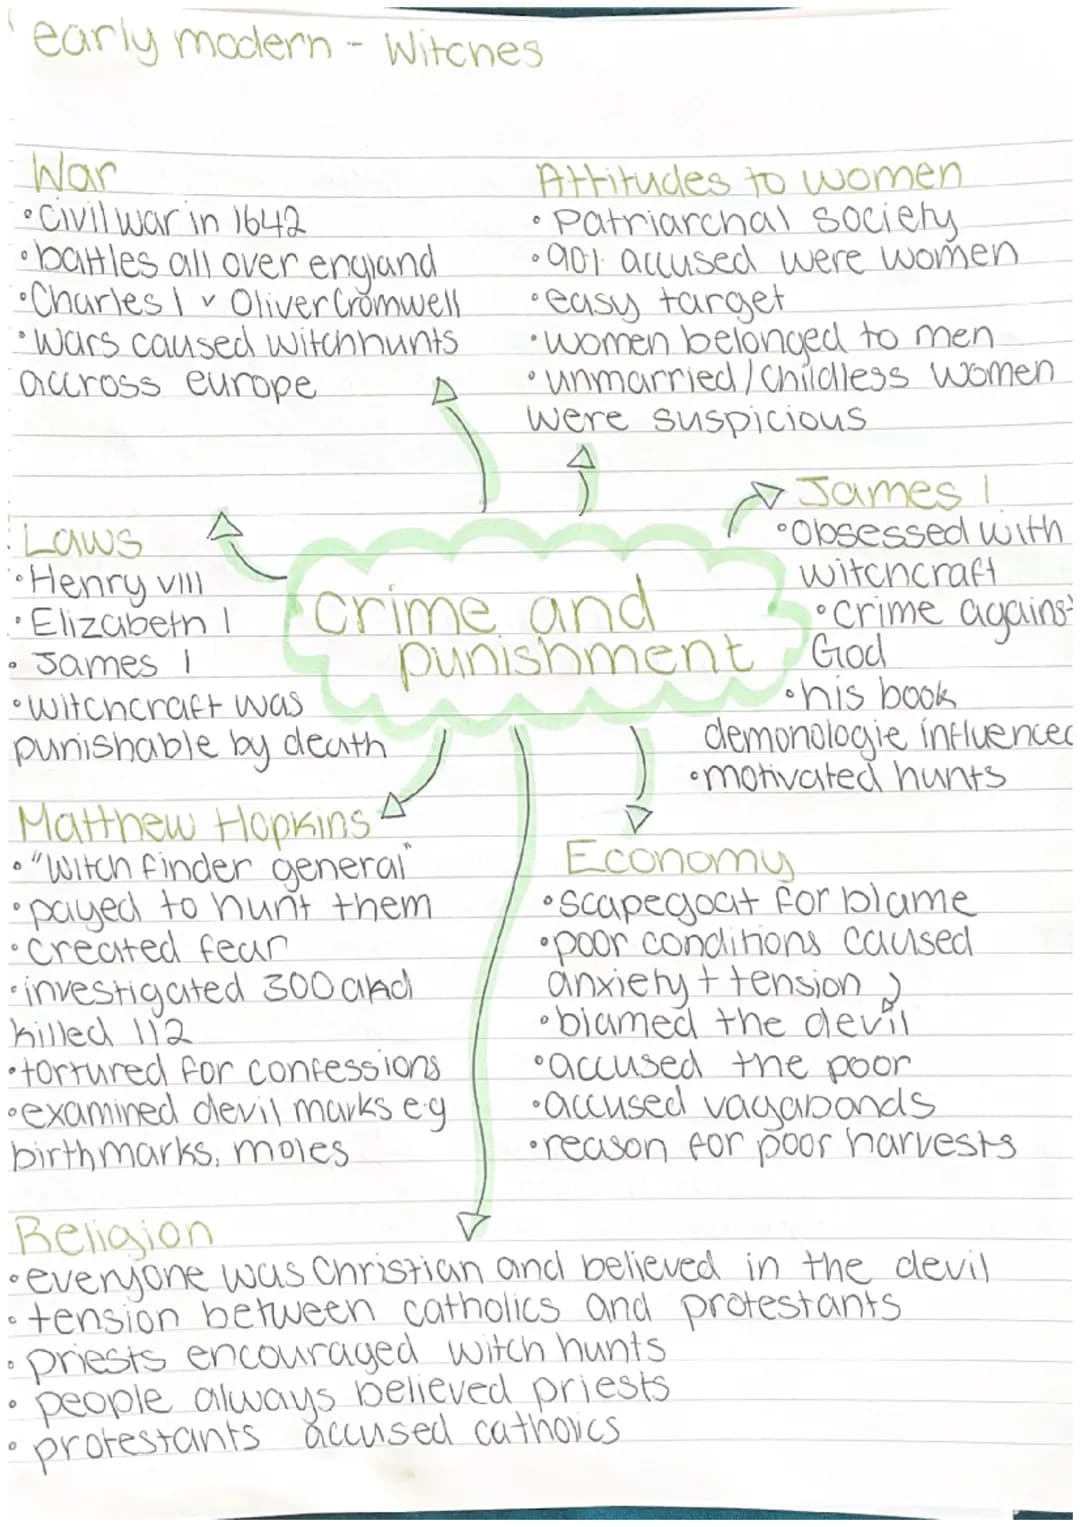 early modern - Witches
War
• Civil war in 1642
• battles all over england
• Charles I v Oliver Cromwell
• Wars caused witchhunts
accross europe
Attitudes to women
• Patriarchal society
• 90% accused were women
• easy target
• women belonged to men
• unmarried/Childless women
were suspicious
James I
• Obsessed with
witchcraft
• crime against
God
• his book
demonologie influenced
• motivated hunts
Laws
• Henry VIII
• Elizabeth I
• James I
• witchcraft was
punishable by death
crime and
punishment
Matthew Hopkins
• "Witch finder general"
• payed to hunt them
• created fear
• investigated 300 and
killed 112
• tortured for confessions
• examined devil marks e.g
birthmarks, moles
Economy
• scapegoat for blame
• poor conditions caused
anxiety + tension
• blamed the devil
• accused the poor
• accused vagabonds
• reason for poor harvests
Religion
• everyone was Christian and believed in the devil
• tension between catholics and protestants
• priests encouraged witch hunts
• people always believed priests
• protestants accused catholics